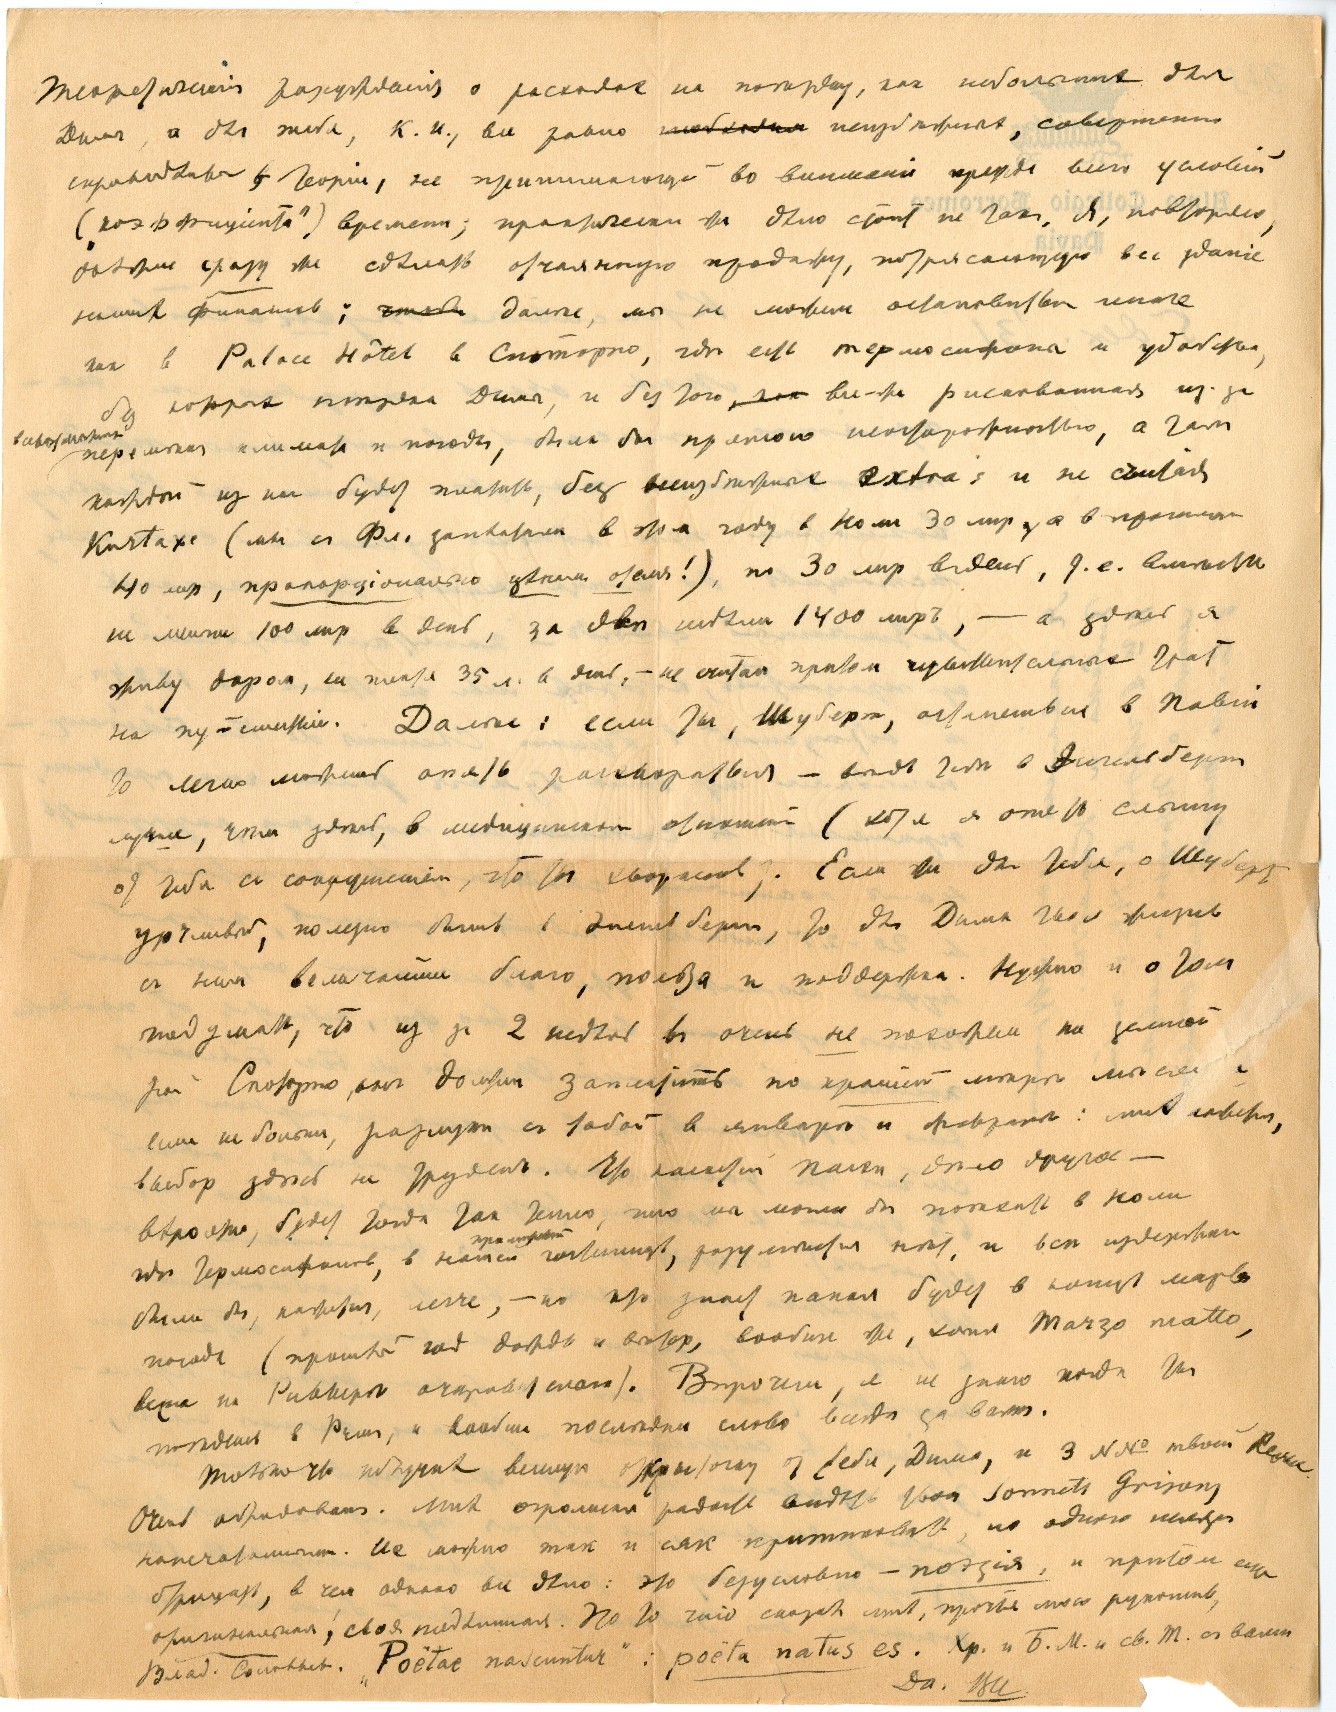 Теоретическія разсужденія о расходах на поездку, как небольших для
Димы, и для тебя, К. И., все равно неизбежных, совершенно
справедливы в теоріи, не принимающей во вниманіе прежде всего условій
("коэффиціента") времени; практически же дело стоит не так. Я, повторяю,
должен сразу же сделать отчаянную продажу, потрясающую все зданіе
наших финансов; далее, мы не можем остановиться иначе
как в Palace Hôtel в Споторно, где есть термосифоны и удобства,
без которых поездка Димы, и без того все-же рискованная из-за
всевозможных
перемены климата и погоды, была бы прямою неосторожностью, а там
каждый из нас будет платить, без неизбежных extra's и не считая
Kurtaxe (мы с Фл. заплатили в этом году в Ноли 30 лир, а в прошлом
40 лир, пропорціонально ценам отеля!), по 30 лир в день, т. е. вместе
не менее 100 лир в день, за две недели 1400 лиръ, — а здесь я
живу даром, не плачу 35 л. в день, — не считая притом чувствительных трат
на путешествіе. Далее: если ты, Шуберт, останешься в Павіи
то легко можешь опять расхвораться — ведь там в Энгельберге
лучше, чем здесь, в медицинском отношеніи (хотя я опять слышу
от тебя с сокрушеніем, что ты хвораешь). Если же для тебя, о Шуберт
полезно быть в Энгельберге, то для Димы твоя жизнь
с ним величайшее благо, польза и поддержка. Нужно и о том
подумать, что из за 2 недель в очень не похожем на земной
рай Споторно, вы должны заплатить по крайней мере месяцем,
если не больше, разлуки с тобой в январе и феврале: мне кажется,
выбор здесь не труден. Что касается Пасхи, дело другое —
вероятно, будет тогда так тепло, что мы могли бы поехать в Ноли
прошлогодней
где термосифонов, в нашей гостинице, разумеется нет, и все издержки
были бы, кажется, легче, — но кто знает какая будет в конце марта
погода (прошлый год дождь и ветер, вообще же, хотя Marzo matto,
весна на Ривьере очаровательна). Впрочем, я не знаю когда ты
поедешь в Рим, и вообще последнее слово всегда за вами.
Только что получил вещую открытку от тебя, Дима, и 3 №№ твоей
Очень обрадован. Мне огромная радость видеть твои Sonnets Grisons
напечатанными. Их можно так и сяк критиковать, но одного нельзя
отрицать, в чем однако все дело: это безусловно — поэзія, и притом еще
оригинальная, своя неделимая. Но то чего сказал мне, прочтя мою рукопись,
Влад. Соловьев. "Poëtae nascuntur": poëta natus es. Хр. и Б. М. и св. Т. с вами
Да. ВИ